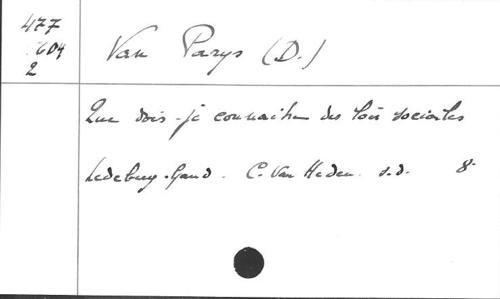 477
604
2
Van Parys (D.)
Que dois-je connaitre des lois sociales
Ledeberg-Gand. C. Van Heden. s.d. 8°